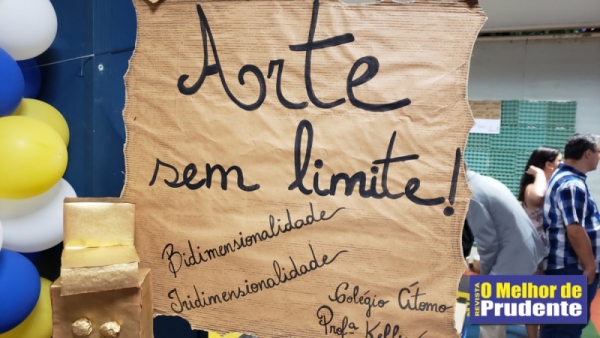 Arte
sem limite!
Bidimensionalidade
Tridimensionalidade
Colégio Átomo
Profª
REVISTA
O Melhor de
Prudente